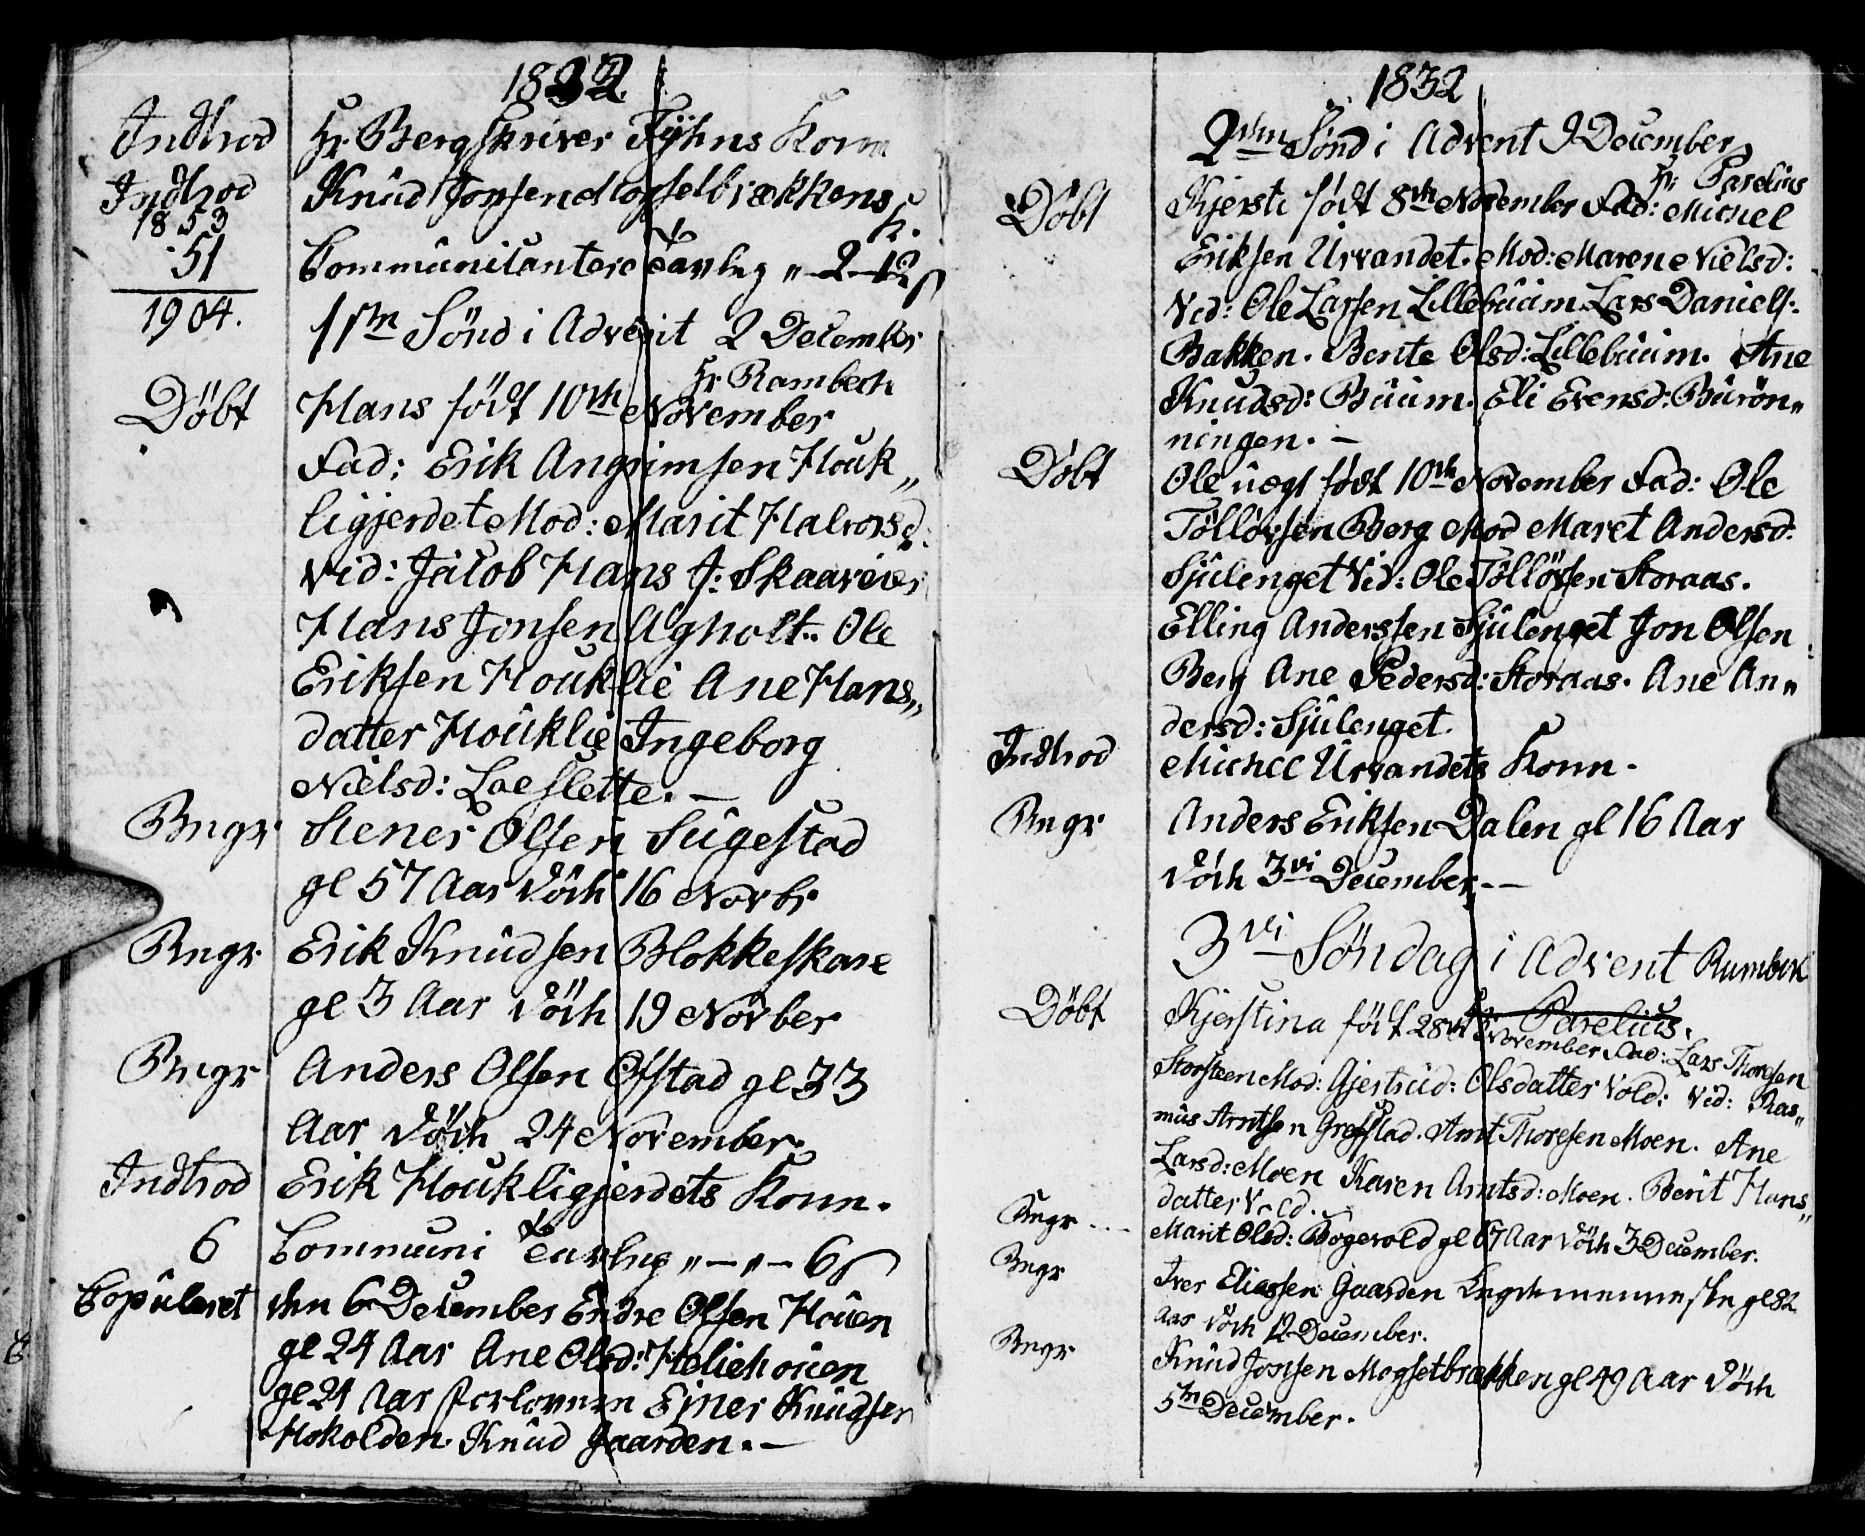 1832
Indtrod Hr. Bergskriver Fÿhns Kom
Indtrod Knud Jonsen Mogsetbrækkens
1853 k.
51 Communicantere Tavlug „ 2 - 12 s
1904.
1ste Sönd i Advent 2 December
Hr Rambech
Döbt Hans födt 10de November
Fad: Erik Angrimsen Houk„
ligjerdet Mod: Marit Halvorsd.
Vid: Jacob Hans J: Skaareier
Hans Jonsen Agholt. Ole
Eriksen Houklie Ane Hans„
datter Houklie Ingeborg
Nielsd: Loeslette. —
Bngr Stener Olsen Sugestad
gl 57 Aar döde 16 Novbr
Bngr Erik Knudsen Blokkeskare
gl 3 Aar döde 19 November
Bngr Anders Olsen Ofstad gl 33
Aar döde 24 November.
Indtrod Erik Houkligjerdets Kone.
6 Communi Tavlug „ — „ — 6 s
Copuleret den 6 December Endre Olsen Houen
gl 24 Aar Ane Olsd: Heliehouen
gl 24 Aar Forlovere Einer Knudsen
Mokolden Knud Gaarden. —
1832
2den Sönd i Advent 9 December
Hr Parelius
Döbt Kjersti födt 8de November Fad: Michel
Eriksen Urvandet. Mod: Maren Nielsd:
Vid: Ole Larsen Lillebuum Lars Daniels:
Bakken. Bente Olsd: Lillebuum. Ane
Knudsd: Buum. Eli Evensd: Burön„
ningen. —
Döbt Ole uægt födt 10de November Fad: Ole
Töllövsen Berg Mod Maret Andersd:
Sjulenget Vid: Ole Töllövsen Storaas.
Elling Anderssen Sjulenget Jon Olsen
Berg Ane Pedersd: Storaas. Ane An„
dersd: Sjulenget.
Indtrod Michel Urvandets Kone.
Bngr Anders Eriksen Dalen gl 16 Aar
döde 3di December. —
3di Söndag i Advent Rambech
Hr Parelius.
Döbt Kjerstina födt 28de November Fad: Lars Thoresen
Storsteen Mod: Gjertrud: Olsdatter Vold: Vid: Ras„
mus Arntsen Grefstad. Arnt Thoresen Moen. Ane
Larsd: Moen Karen Arntsd: Moen. Berit Hans„
datter Vold.
Bngr Marit Olsd: Bögevold gl 67 Aar döde 3 December.
Bngr Iver Eliassen Gaarden gl 82
Aar döde 12 December.
Bngr Knud Jonsen Mogsetbrækken gl 49 Aar döde
5te December.